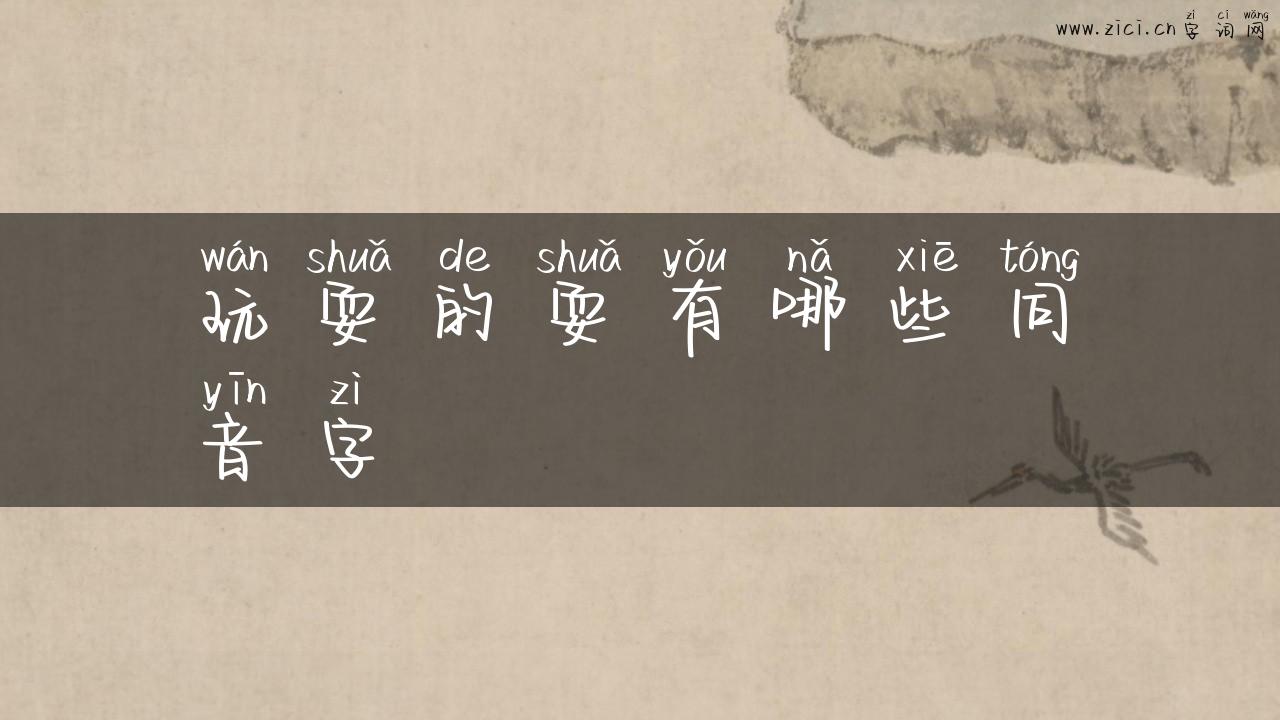 zì cí wǎng
www.zici.cn字词网
wán shuǎ de shuǎ yǒu nǎ xiē tóng
玩耍的耍有哪些同
yīn zì
音字